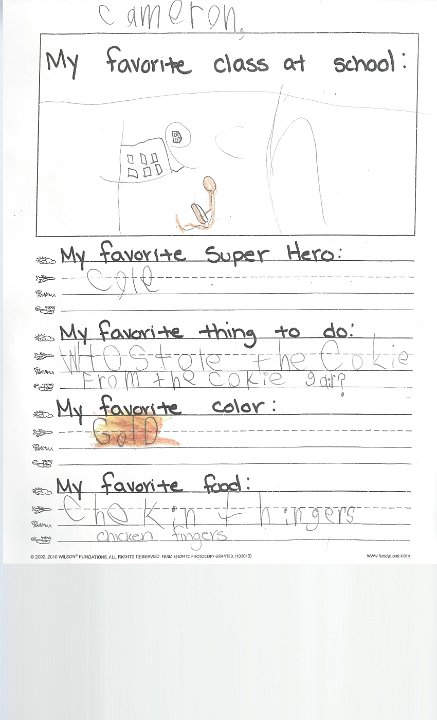 cameron
My favorite class at school:
My favorite Super Hero:
Cole
My favorite thing to do:
WHO Stole the Cokie
From the cokie gar?
My favorite color:
GolD
My favorite food:
Chekin fhingers
chicken fingers
© 2002, 2010 WILSON® FUNDATIONS. ALL RIGHTS RESERVED.